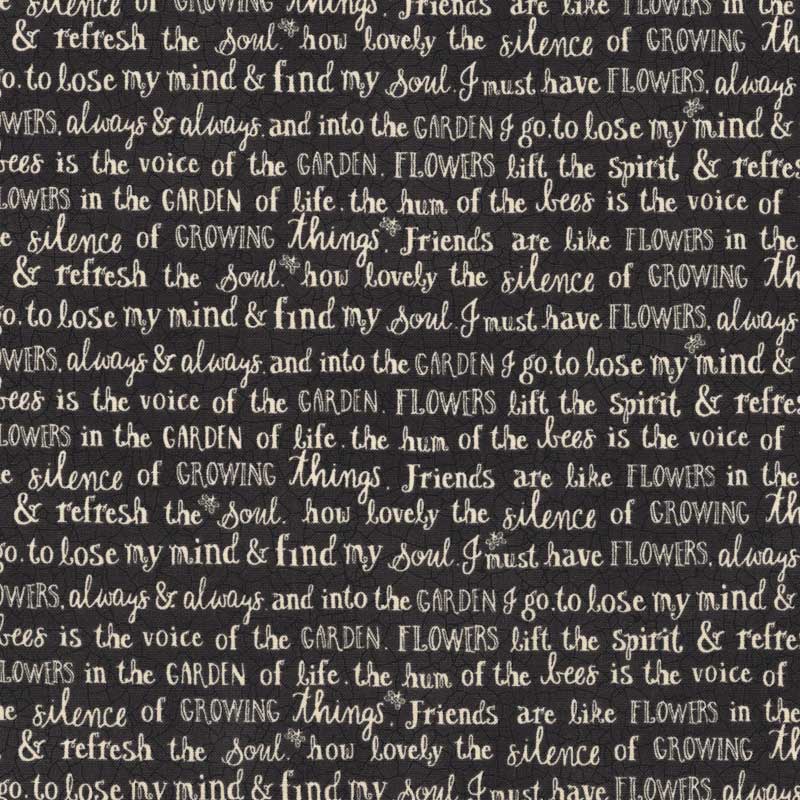 silence of GROWING things. Friends are like FLOWERS in the
& refresh the soul. how lovely the silence of GROWING th
go. to lose my mind & find my soul. I must have FLOWERS, always
OWERS, always & always. and into the GARDEN I go. to lose my mind &
bees is the voice of the GARDEN. FLOWERS lift the spirit & refres
LOWERS in the GARDEN of life. the hum of the bees is the voice of
e silence of GROWING things. Friends are like FLOWERS in the
& refresh the soul. how lovely the silence of GROWING th
go. to lose my mind & find my soul. I must have FLOWERS, always
OWERS, always & always. and into the GARDEN I go. to lose my mind &
bees is the voice of the GARDEN. FLOWERS lift the spirit & refres
LOWERS in the GARDEN of life. the hum of the bees is the voice of
e silence of GROWING things. Friends are like FLOWERS in the
& refresh the soul. how lovely the silence of GROWING th
go. to lose my mind & find my soul. I must have FLOWERS, always
OWERS, always & always. and into the GARDEN I go. to lose my mind &
bees is the voice of the GARDEN. FLOWERS lift the spirit & refre
LOWERS in the GARDEN of life. the hum of the bees is the voice of
e silence of GROWING things. Friends are like FLOWERS in the
& refresh the soul. how lovely the silence of GROWING th
go. to lose my mind & find my soul. I must have FLOWERS, always